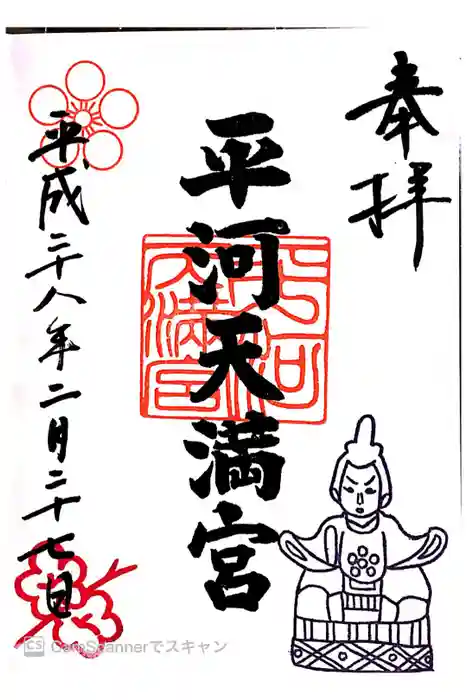 奉拝
平河天満宮
平河天満宮
平成二十八年二月二十七日
CS CamScannerでスキャン